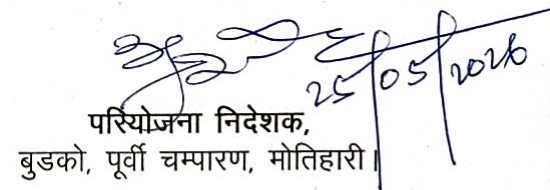 25/05/2026
परियोजना निदेशक,
बुडको, पूर्वी चम्पारण, मोतिहारी।